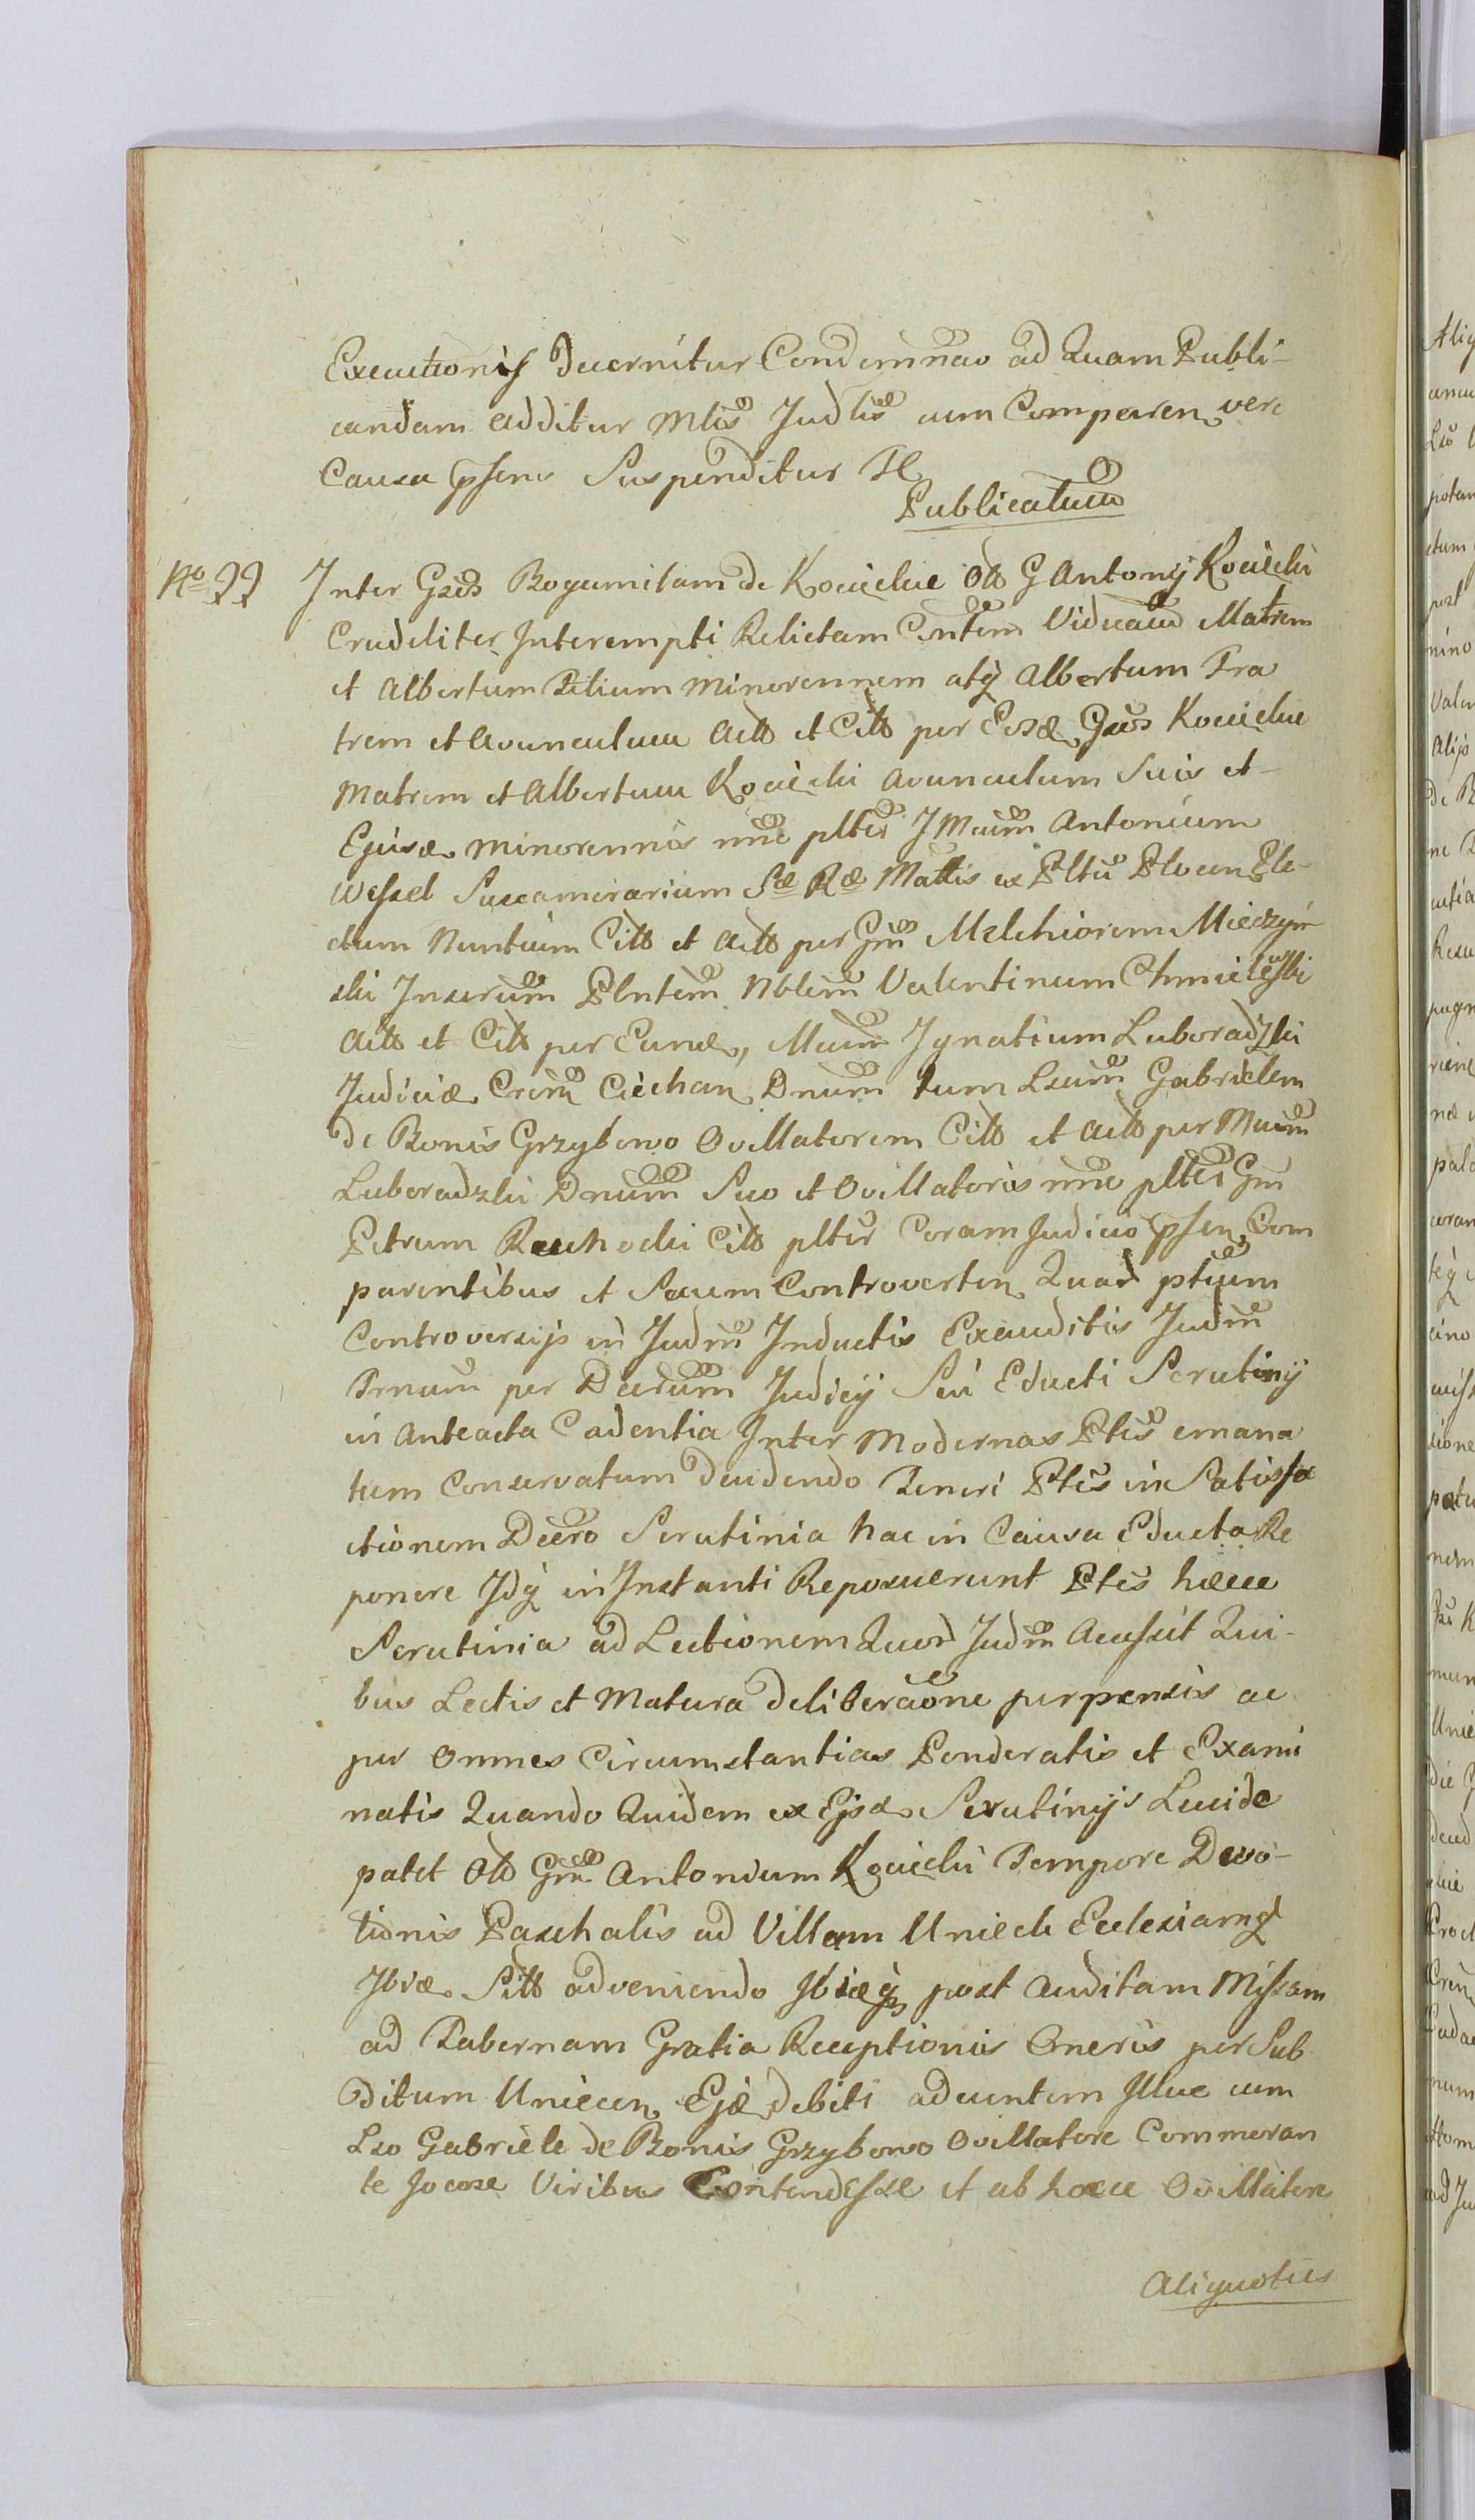 Executionis decernitur Condemnao ad Quam Publi-
candam additur Mlis Judlis cum Comparen vere
Causa psens Suspenditur
Publicatum
No 99 Inter Gsos Bogumilam de Kocięckie Ott G Antonij Kocięcki
Crudeliter Interempti Relictam Cntem Viduam Matrem
et Albertum Filium minorennem atq Albertum Fra
trem et Avunculum Actt et Citt per Eosd Gsos Kocięckie
Matrem et Albertum Kocięcki avunculum Suis et
Ejusd minorennis nne pltes JMcum Antonium
Wessel Succamerarium Sæ Ræ Mattis ex Pltu Plocen Ele-
ctum Nuntium Citt et Actt per Gm Melchiorem Miedzyń
ski Juxerum Plntem Nblem Valentinum Chmielewski
Actt et Citt per Eund, Mcum Ignatium Luboradzki
Judiciæ Crim Ciechan Dnum tum Lsum Gabrielem
de Bonis Grzybowo Ovillatorem Citt et Actt per Mcum
Luboradzki Dnum Suo et Ovillatoris nne pltes Gm
Petrum Rauchocki Citt pltes Coram Judicio psen Com
parentibus et Secum Controverten Quar ptium
Controversijs in Judm Inductis Exauditis Judm
Prnum per Decrum Judicij Sui Educti Scrutinij
in Anteacta Cadentia Inter Modernas Ptes emana
tum Conservatum decidendo Teneri Ptes in Satisfa
ctionem Decro Scrutinia hac in Causa Educta Re
ponere Idq in Instanti Reposuerunt Ptes hæcce
Scrutinia ad Lectionem Quor Judm Acessit Qui-
bus Lectis et Matura deliberaone perpensis ac
per Omnes Circumstantias Ponderatis et Exami
natis Quando Quidem ex Ejsd Scrutinijs Lucide
patet Ott Gm Antonium Kocięcki Tempore Devo-
tionis Paschalis ad Villam Unieck Ecclesiamq
Ibid Sitt adveniendo Ibidq post Auditam Missam
ad Tabernam Gratia Receptionis Oneris per Sub
ditum Uniecen Ejd debiti advenientem Illuc cum
Lso Gabriele de Bonis Grzybowo Ovillatore Commoran
te Jocose Viribus Contendisse et ab hocce Ovillatore
Aliquoties